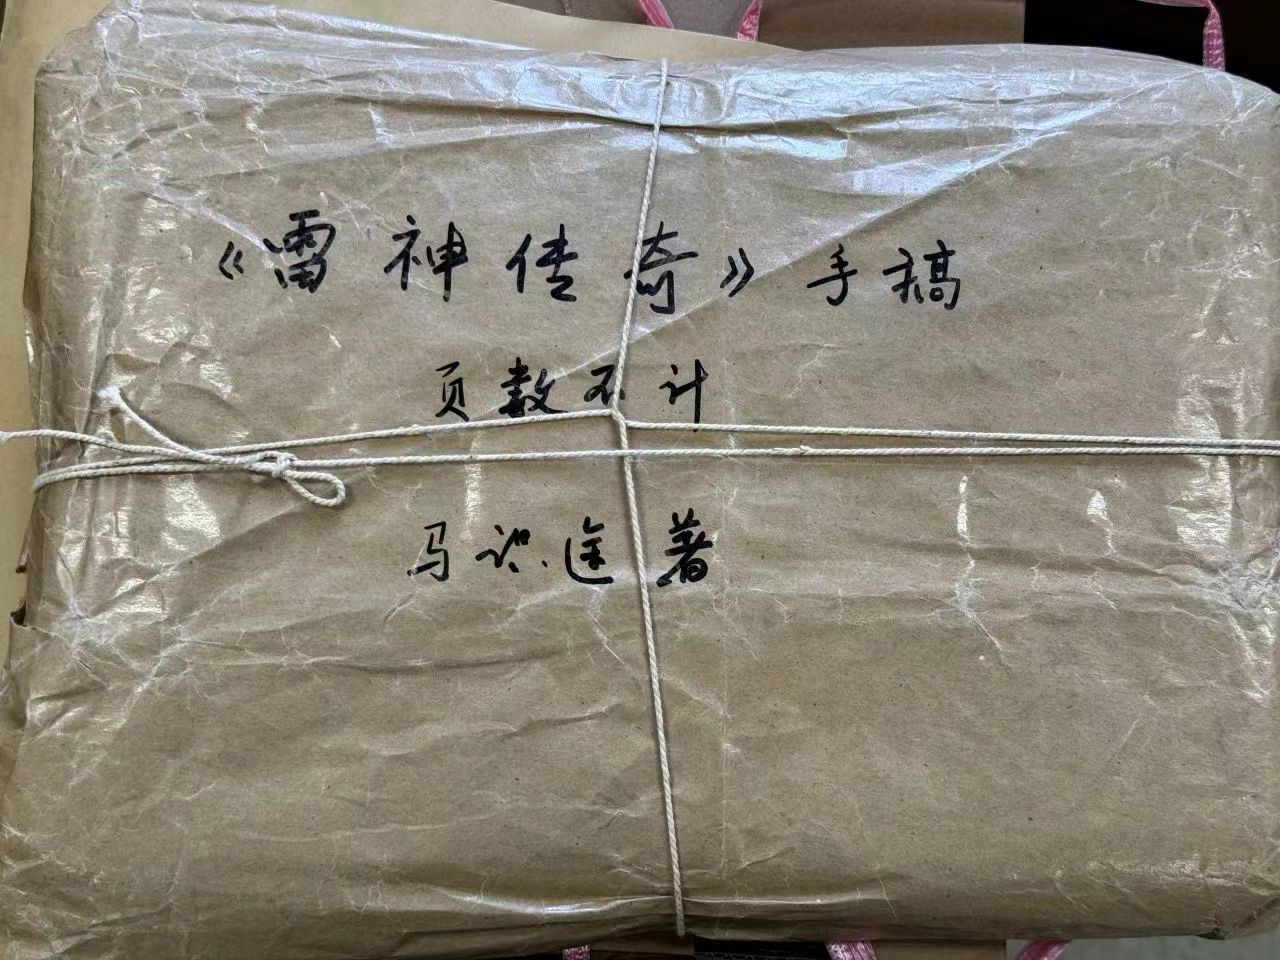 《雷神传奇》手稿
页数不计
马识途 著